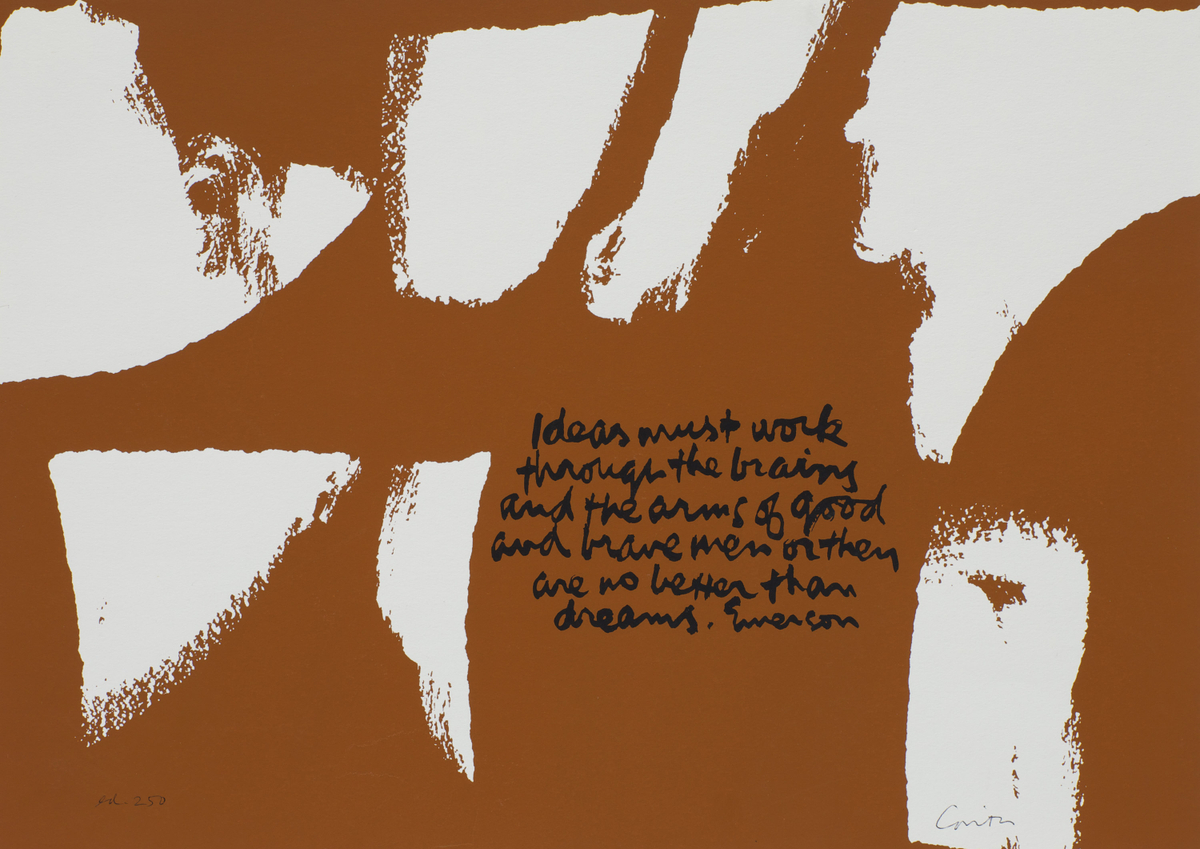 Ideas must work
through the brains
and the arms of good
and brave men or they
are no better than
dreams. Emerson
ed. 250
Corita